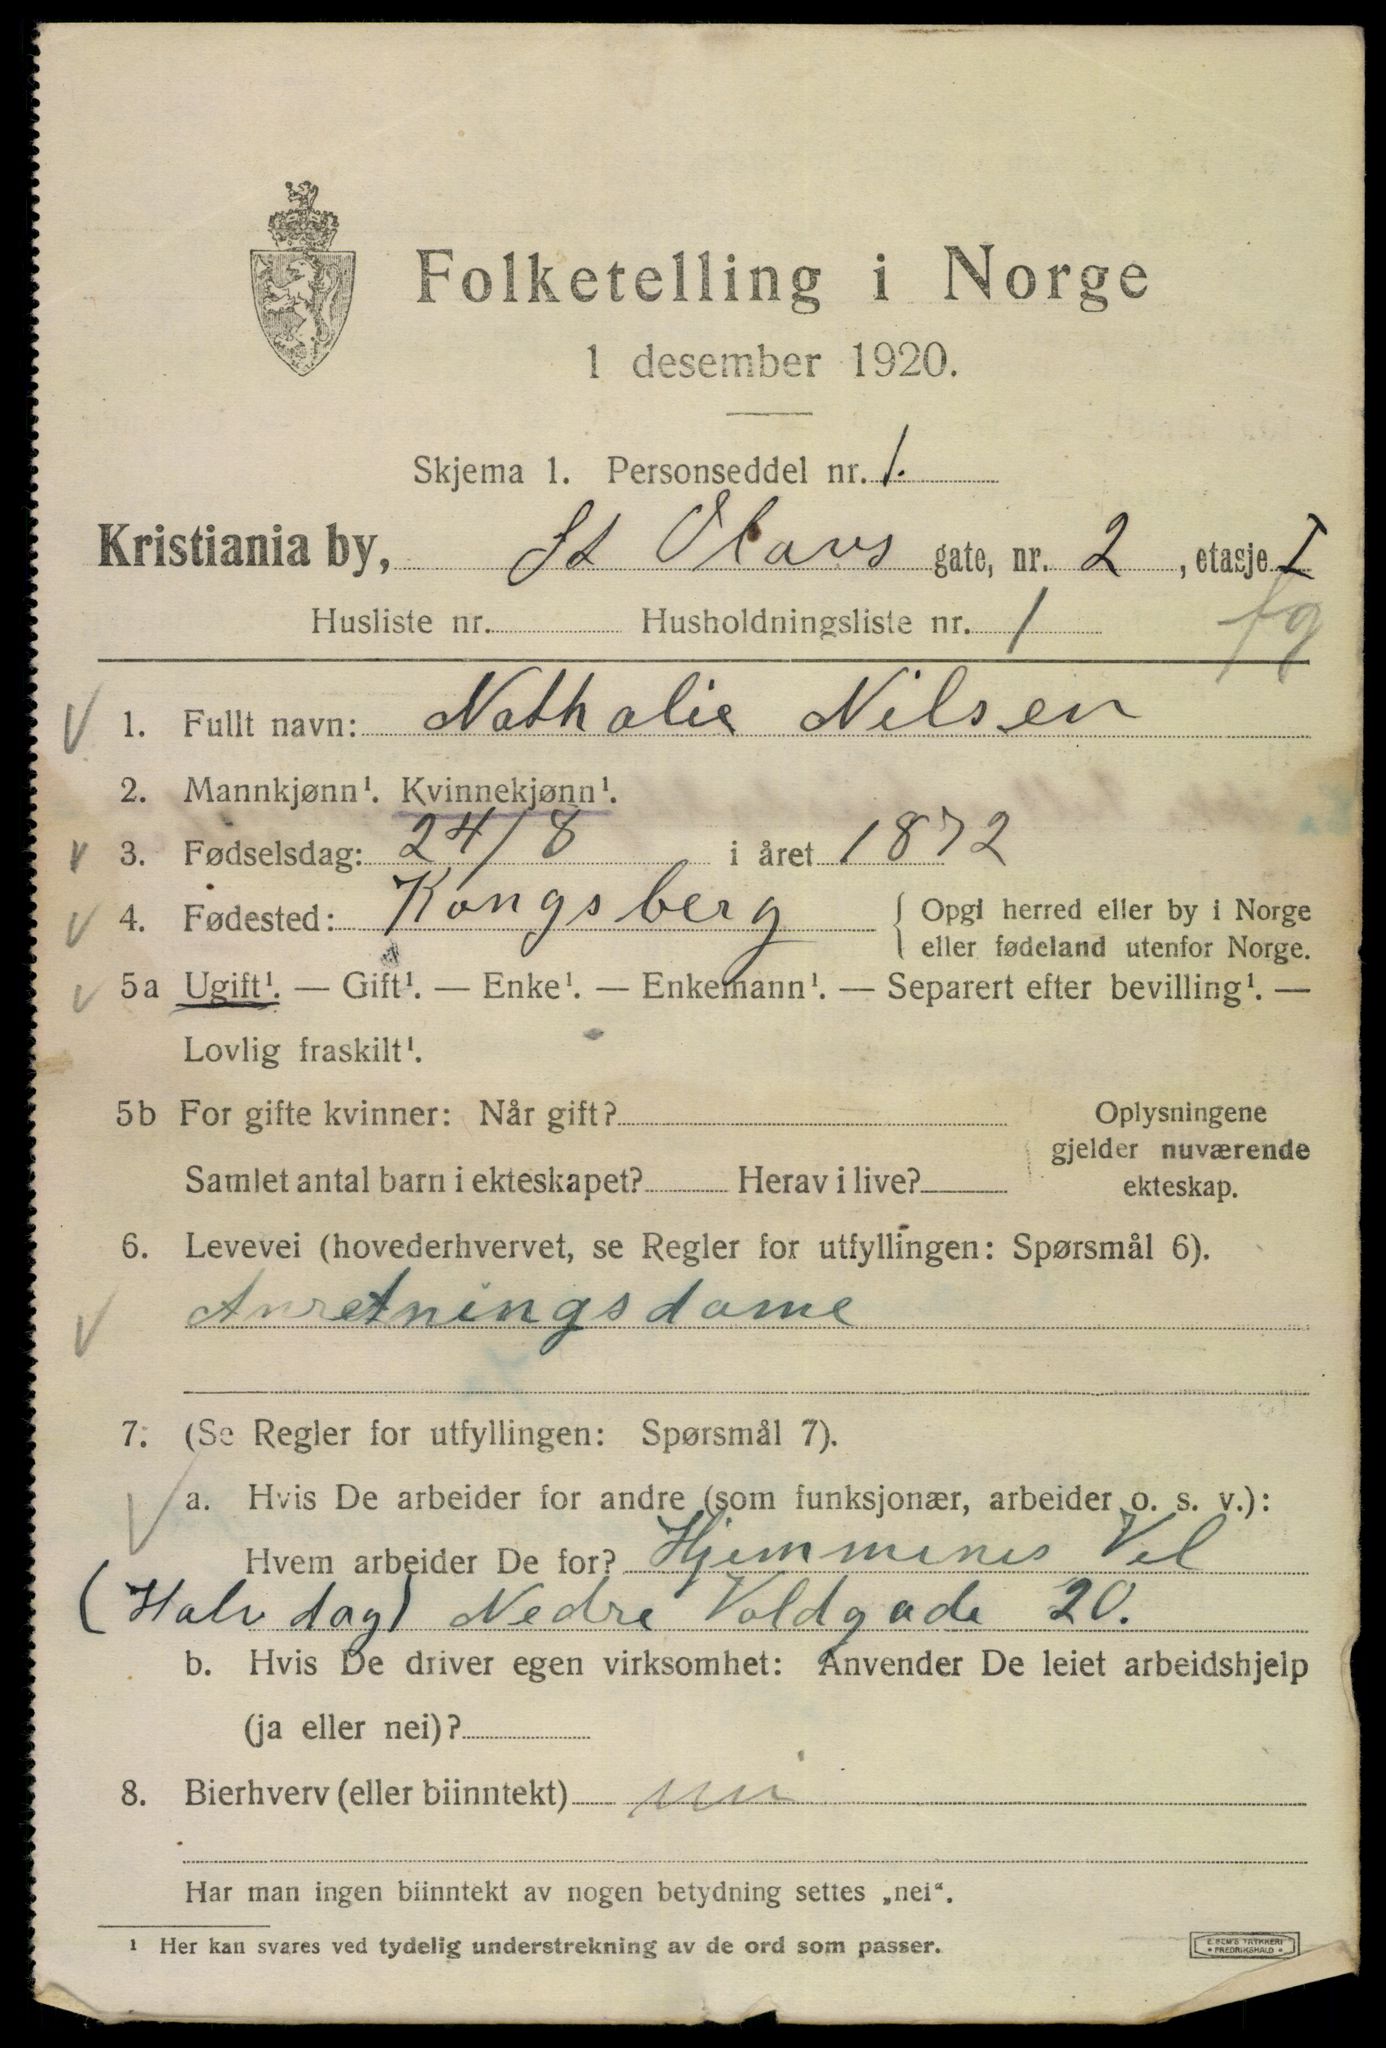 Folketelling i Norge
1 desember 1920.
Skjema 1. Personseddel nr. 1.
Kristiania by, St Olavs gate, nr. 2, etasje I
Husliste nr. Husholdningsliste nr. 1 fg
1. Fullt navn: Nathalie Nilsen
2. Mannkjønn¹. Kvinnekjønn¹.
3. Fødselsdag: 24/8 i året 1872
4. Fødested: Kongsberg { Opgi herred eller by i Norge
eller fødeland utenfor Norge.
5a Ugift¹. — Gift¹. — Enke¹. — Enkemann¹. — Separert efter bevilling¹. —
Lovlig fraskilt¹.
5b For gifte kvinner: Når gift? Oplysningene
gjelder nuværende
Samlet antal barn i ekteskapet? Herav i live? ekteskap.
6. Levevei (hovederhvervet, se Regler for utfyllingen: Spørsmål 6).
Anretningsdame
7. (Se Regler for utfyllingen: Spørsmål 7).
a. Hvis De arbeider for andre (som funksjonær, arbeider o. s. v.):
Hvem arbeider De for? Hjemmenes Vel
(Halv dag) Nedre Voldgade 20.
b. Hvis De driver egen virksomhet: Anvender De leiet arbeidshjelp
(ja eller nei)?
8. Bierhverv (eller biinntekt) nei
Har man ingen biinntekt av nogen betydning settes „nei“.
¹ Her kan svares ved tydelig understrekning av de ord som passer.
E. SEM'S TRYKKERI
FREDRIKSHALD